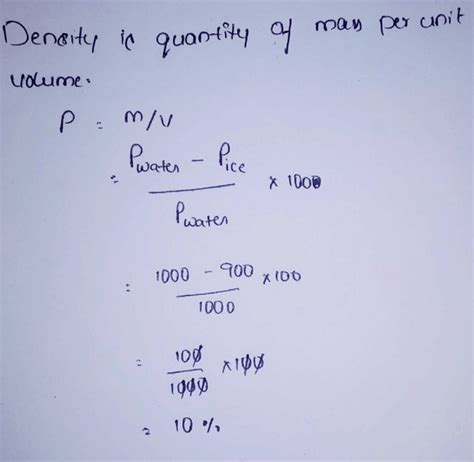 Density is quantity of mass per unit
volume.
P = m/v
= Pwater - Pice / Pwater × 1000
= 1000 - 900 / 1000 × 100
= 100 / 1000 × 100
= 10 %